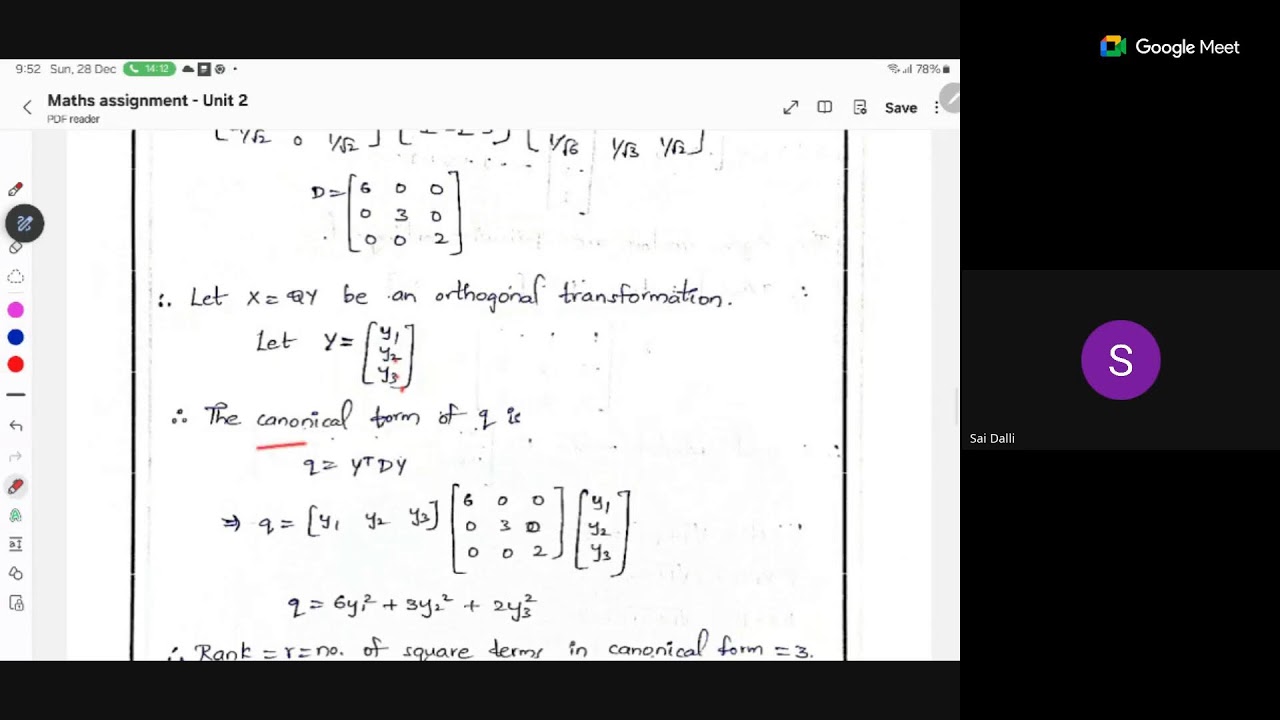 Google Meet
9:52 Sun, 28 Dec 14:12 78%
Maths assignment - Unit 2
PDF reader
Save
0 1/√2 ] [ ] [ 1/√6 1/√3 1/√2 ]
D = [ 6 0 0
0 3 0
0 0 2 ]
∴ Let X = QY be an orthogonal transformation.
Let Y = [ y₁
y₂
y₃ ]
∴ The canonical form of q is
q = YᵀDY
⇒ q = [y₁ y₂ y₃] [ 6 0 0 ] [ y₁ ]
[ 0 3 0 ] [ y₂ ]
[ 0 0 2 ] [ y₃ ]
q = 6y₁² + 3y₂² + 2y₃²
∴ Rank = r = no. of square terms in canonical form = 3.
S
Sai Dalli